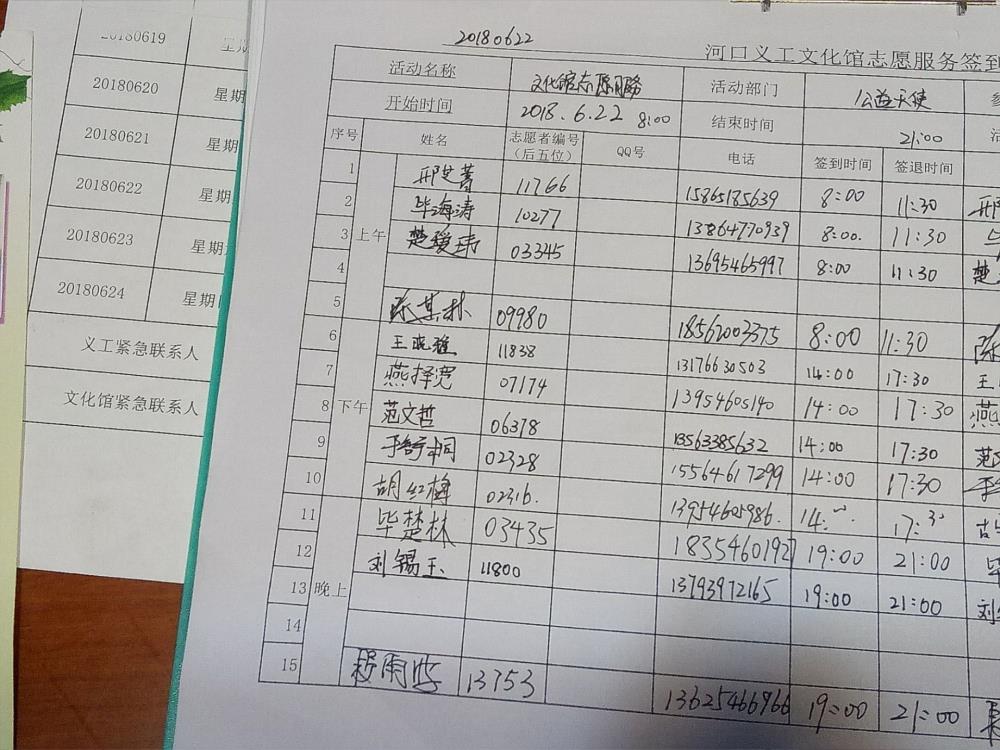 20180619
20180620 星期
20180621 星期
20180622 星期
20180623 星期
20180624 星期
义工紧急联系人
文化馆紧急联系人
20180622
河口义工文化馆志愿服务签到
活动名称 文化馆志愿服务 活动部门 公益天使
开始时间 2018.6.22 8:00 结束时间 21:00
序号 姓名 志愿者编号（后五位） QQ号 电话 签到时间 签退时间
上午
下午
晚上
1 11766 15865185639 8:00 11:30
2 毕海涛 10277 13864770939 8:00. 11:30
3 楚瑷玮 03345 13695465997 8:00 11:30 楚
4
5 09980 18562003375 8:00 11:30
6 王晓雅 11838 13176630503 14:00 17:30 王
7 燕择宽 07174 13954605140 14:00 17:30 燕
8 范文哲 06378 13563385632 14:00 17:30 范
9 于舒桐 02328 15564617299 14:00 17:30
10 胡红梅 02316. 13954605986. 14: 17:
11 毕楚林 03435 18354601927 19:00 21:00 毕
12 刘锡玉 11800 13793972165 19:00 21:00 刘
13
14
15 程雨 13753 13625466966 19:00 21:00